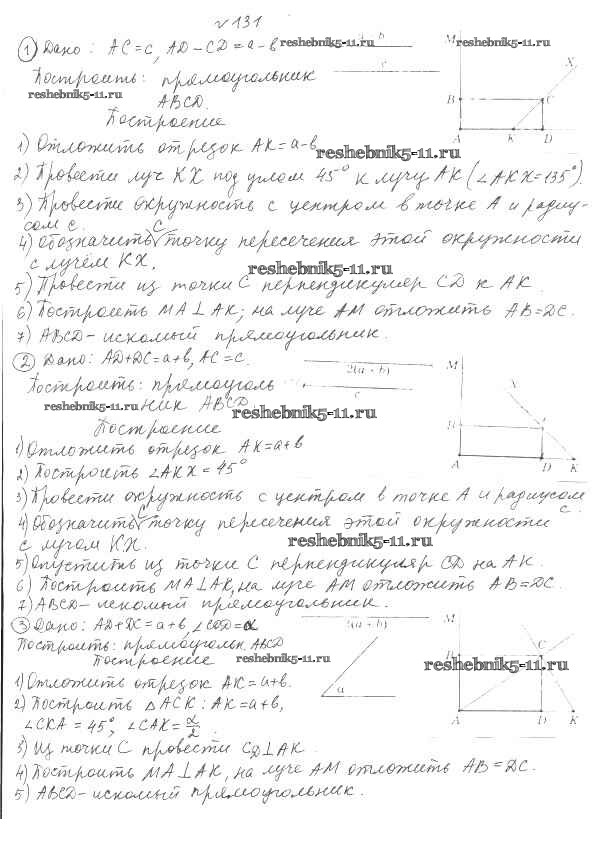 № 131
① Дано: AC=c, AD-CD=a-b reshebnik5-11.ru b reshebnik5-11.ru M
Построить: прямоугольник c X
reshebnik5-11.ru ABCD. B C
Построение A K D
1) Отложить отрезок AK=a-b reshebnik5-11.ru
2) Провести луч KX под углом 45° к лучу AK (∠AKX=135°).
3) Провести окружность с центром в точке A и радиу-
сом c.
4) Обозначить C точку пересечения этой окружности
с лучём KX. reshebnik5-11.ru
5) Провести из точки C перпендикуляр CD к AK.
6) Построить MA⊥AK; на луче AM отложить AB=DC.
7) ABCD-искомый прямоугольник.
② Дано: AD+DC=a+b, AC=c. 2(a+b) M
Построить: прямоуголь c X
reshebnik5-11.ru ник ABCD reshebnik5-11.ru B
Построение A D K
1) Отложить отрезок AK=a+b
2) Построить ∠AKX=45°
3) Провести окружность с центром в точке A и радиусом
c.
4) Обозначить C точку пересечения этой окружности
с лучом KX. reshebnik5-11.ru
5) Опустить из точки C перпендикуляр CD на AK.
6) Построить MA⊥AK, на луче AM отложить AB=DC.
7) ABCD-искомый прямоугольник.
③ Дано: AD+DC=a+b, ∠COD=α 2(a+b) M
Построить: прямоугольн. ABCD C
Построение reshebnik5-11.ru B reshebnik5-11.ru
1) Отложить отрезок AK=a+b. α A D K
2) Построить △ACK: AK=a+b,
∠CKA=45°, ∠CAK=α/2.
3) Из точки C провести CD⊥AK.
4) Построить MA⊥AK, на луче AM отложить AB=DC.
5) ABCD-искомый прямоугольник.